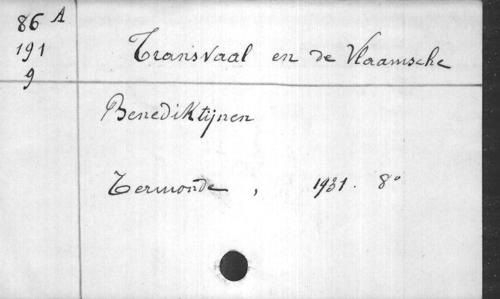 86 A
191
9
Transvaal en de Vlaamsche
Benediktijnen
Termonde, 1931. 8°